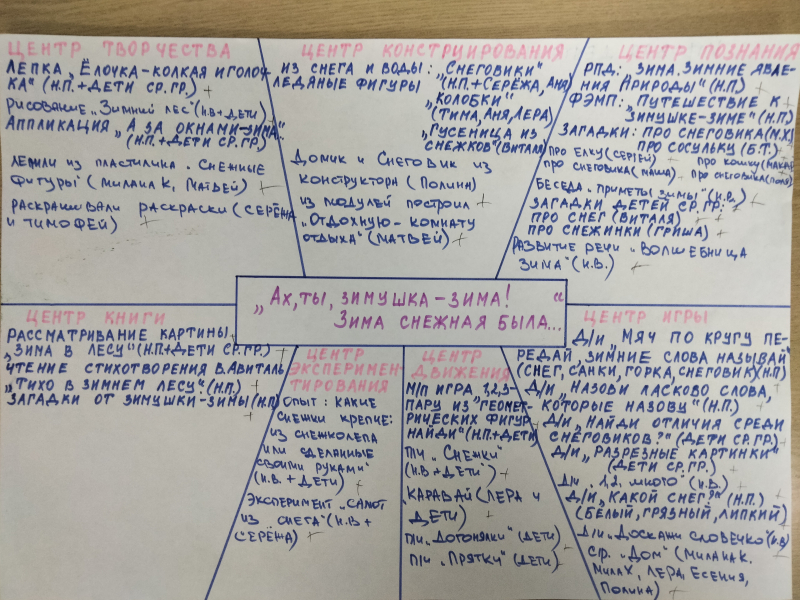 ЦЕНТР ТВОРЧЕСТВА
ЛЕПКА „ЁЛОЧКА-КОЛКАЯ ИГОЛОЧ-
КА“ (Н.П.+ДЕТИ СР.ГР.)
РИСОВАНИЕ „ЗИМНИЙ ЛЕС“ (Н.В+ДЕТИ)
АППЛИКАЦИЯ „А ЗА ОКНАМИ-ЗИМА“
(Н.П+ДЕТИ СР.ГР)
ЛЕПИЛИ ИЗ ПЛАСТИЛИНА „СНЕЖНЫЕ
ФИГУРЫ“ (МИЛАНА К, МАТВЕЙ)
РАСКРАШИВАЛИ РАСКРАСКИ (СЕРЁЖА
И ТИМОФЕЙ)
ЦЕНТР КОНСТРУИРОВАНИЯ
ИЗ СНЕГА И ВОДЫ: „СНЕГОВИКИ“
ЛЕДЯНЫЕ ФИГУРЫ (Н.П+СЕРЁЖА, АНЯ)
„КОЛОБКИ“
(ТИМА, АНЯ, ЛЕРА)
„ГУСЕНИЦА ИЗ
СНЕЖКОВ“ (ВИТАЛЯ)
ДОМИК И СНЕГОВИК ИЗ
КОНСТРУКТОРА (ПОЛИНА)
ИЗ МОДУЛЕЙ ПОСТРОИЛ
„ОТДОХНУЮ-КОМНАТУ
ОТДЫХА“ (МАТВЕЙ)
ЦЕНТР ПОЗНАНИЯ
РПД: „ЗИМА. ЗИМНИЕ ЯВЛЕ-
НИЯ ПРИРОДЫ“ (Н.П)
ФЭМП: „ПУТЕШЕСТВИЕ К
ЗИМУШКЕ-ЗИМЕ“ (Н.П)
ЗАГАДКИ: ПРО СНЕГОВИКА (М.Х)
ПРО СОСУЛЬКУ (Б.Т.)
ПРО ЕЛКУ (СЕРГЕЙ) ПРО КОШКУ (МАКАР)
ПРО СНЕГОВИКА (МАША) ПРО СНЕГОВИКА (ПОЛЯ)
БЕСЕДА „ПРИМЕТЫ ЗИМЫ“ (Н.В.)
ЗАГАДКИ ДЕТЕЙ СР.ГР:
ПРО СНЕГ (ВИТАЛЯ)
ПРО СНЕЖИНКИ (ГРИША)
РАЗВИТИЕ РЕЧИ „ВОЛШЕБНИЦА
ЗИМА“ (Н.В.)
„АХ, ТЫ, ЗИМУШКА-ЗИМА!
ЗИМА СНЕЖНАЯ БЫЛА...“
ЦЕНТР КНИГИ
РАССМАТРИВАНИЕ КАРТИНЫ
„ЗИМА В ЛЕСУ“ (Н.П+ДЕТИ СР.ГР.)
ЧТЕНИЕ СТИХОТВОРЕНИЯ В.АВИТАЛЬ
„ТИХО В ЗИМНЕМ ЛЕСУ“. (Н.П.)
ЗАГАДКИ ОТ ЗИМУШКИ-ЗИМЫ (Н.П)
ЦЕНТР
ЭКСПЕРИМЕН-
ТИРОВАНИЯ
ОПЫТ: КАКИЕ
СНЕЖКИ КРЕПЧЕ:
ИЗ СНЕЖКОЛЕПА
ИЛИ СДЕЛАННЫЕ
СВОИМИ РУКАМИ“
(Н.В.+ДЕТИ)
ЭКСПЕРИМЕНТ „САЛЮТ
ИЗ СНЕГА“ (Н.В+
СЕРЁЖА)
ЦЕНТР
ДВИЖЕНИЯ
М/П ИГРА „1,2,3-
ПАРУ ИЗ “ГЕОМЕТ-
РИЧЕСКИХ ФИГУР
НАЙДИ“ (Н.П+ДЕТИ)
П/И „СНЕЖКИ“
(Н.В+ДЕТИ)
КАРАВАЙ (ЛЕРА И
ДЕТИ)
П/И „ДОГОНЯЛКИ“ (ДЕТИ)
П/И „ПРЯТКИ“ (ДЕТИ)
ЦЕНТР ИГРЫ
Д/И „МЯЧ ПО КРУГУ ПЕ-
РЕДАЙ, ЗИМНИЕ СЛОВА НАЗЫВАЙ“
(СНЕГ, САНКИ, ГОРКА, СНЕГОВИК) (Н.П)
Д/И „НАЗОВИ ЛАСКОВО СЛОВА,
КОТОРЫЕ НАЗОВУ“ (Н.П.)
Д/И „НАЙДИ ОТЛИЧИЯ СРЕДИ
СНЕГОВИКОВ?“ (ДЕТИ СР.ГР.)
Д/И „РАЗРЕЗНЫЕ КАРТИНКИ“
(ДЕТИ СР.ГР.)
Д/И „1,2, МНОГО“ (Н.В.)
Д/И „КАКОЙ СНЕГ?“ (Н.П.)
(БЕЛЫЙ, ГРЯЗНЫЙ, ЛИПКИЙ)
Д/И „ДОСКАЖИ СЛОВЕЧКО“ (Н.В)
С.Р. „ДОМ“ (МИЛАНА К.
МИЛА Х, ЛЕРА, ЕСЕНИЯ,
ПОЛИНА)